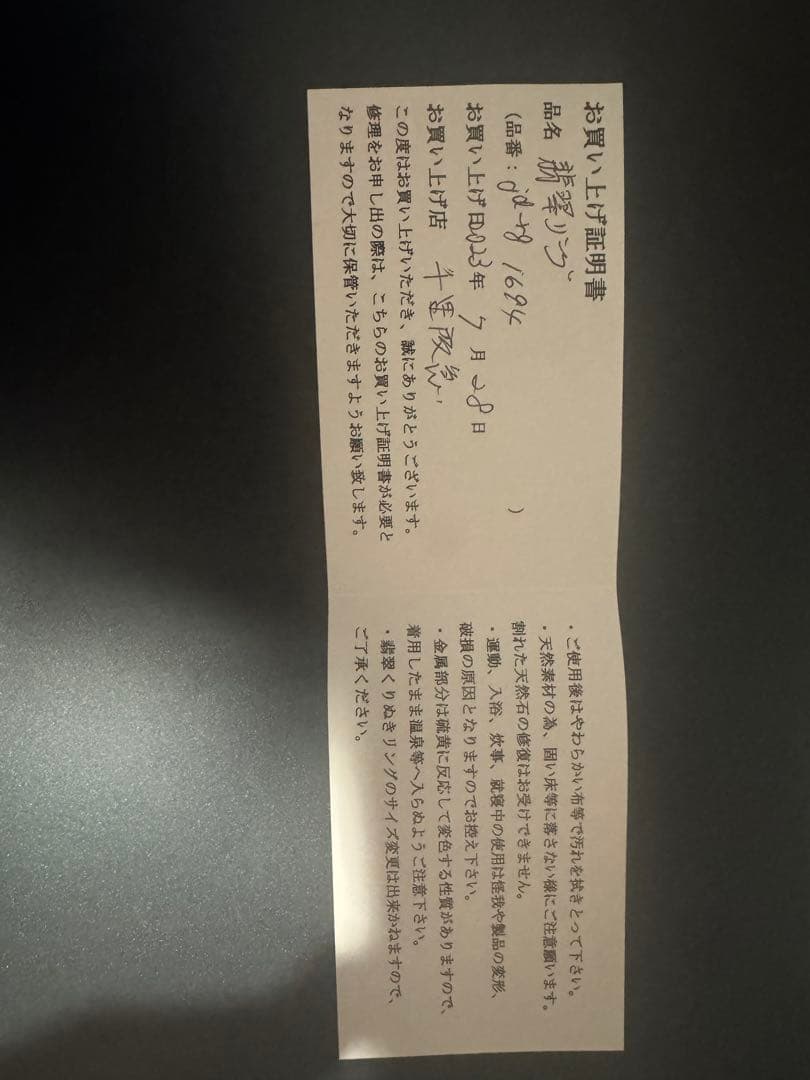 お買い上げ証明書
品名 翡翠リング
(品番：jd-rg 1694 )
お買い上げ日2023年 7月 28日
お買い上げ店 千里阪急
この度はお買い上げいただき、誠にありがとうございます。
修理をお申し出の際は、こちらのお買い上げ証明書が必要と
なりますので大切に保管いただきますようお願い致します。
・ご使用後はやわらかい布等で汚れを拭きとって下さい。
・天然素材の為、固い床等に落さない様にご注意願います。
割れた天然石の修復はお受けできません。
・運動、入浴、炊事、就寝中の使用は怪我や製品の変形、
破損の原因となりますのでお控え下さい。
・金属部分は硫黄に反応して変色する性質がありますので、
着用したまま温泉等へ入らぬようご注意下さい。
・翡翠くりぬきリングのサイズ変更は出来かねますので、
ご了承ください。